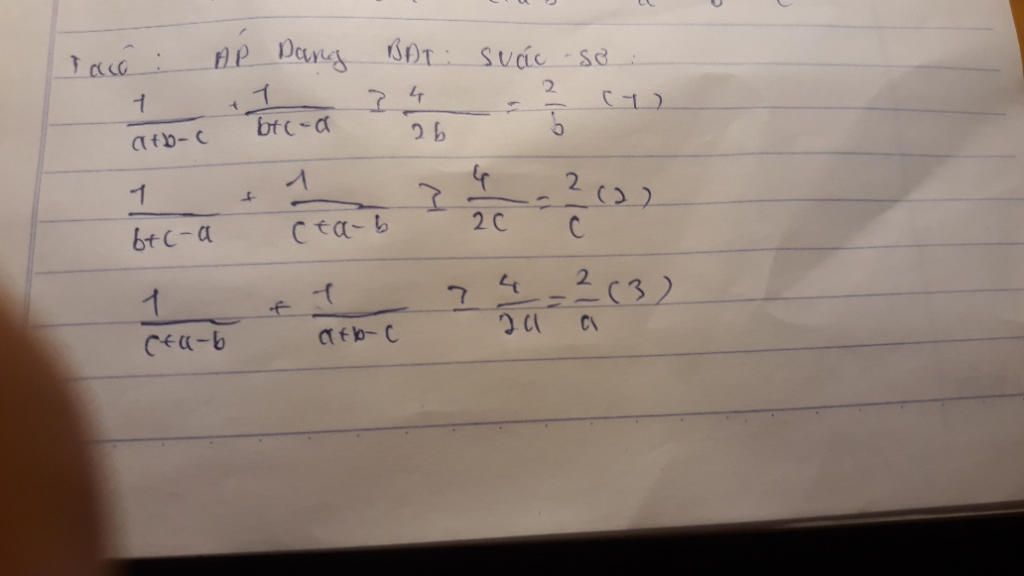 Ta có : ÁP Dạng BĐT: Svác-sơ:
1/(a+b-c) + 1/(b+c-a) ≥ 4/2b = 2/b (1)
1/(b+c-a) + 1/(c+a-b) ≥ 4/2c = 2/c (2)
1/(c+a-b) + 1/(a+b-c) ≥ 4/2a = 2/a (3)